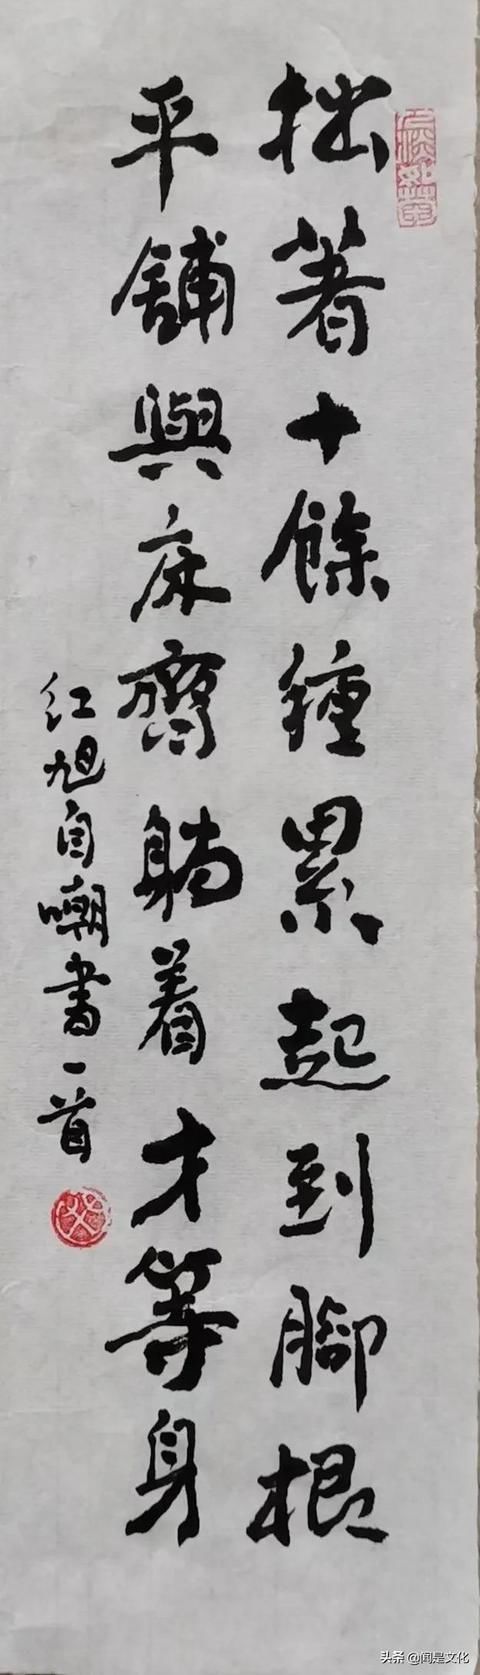 拙著十餘種累起到腳根
平舖與床齊躺着才等身
红旭自嘲書一首
头条 @闻是文化